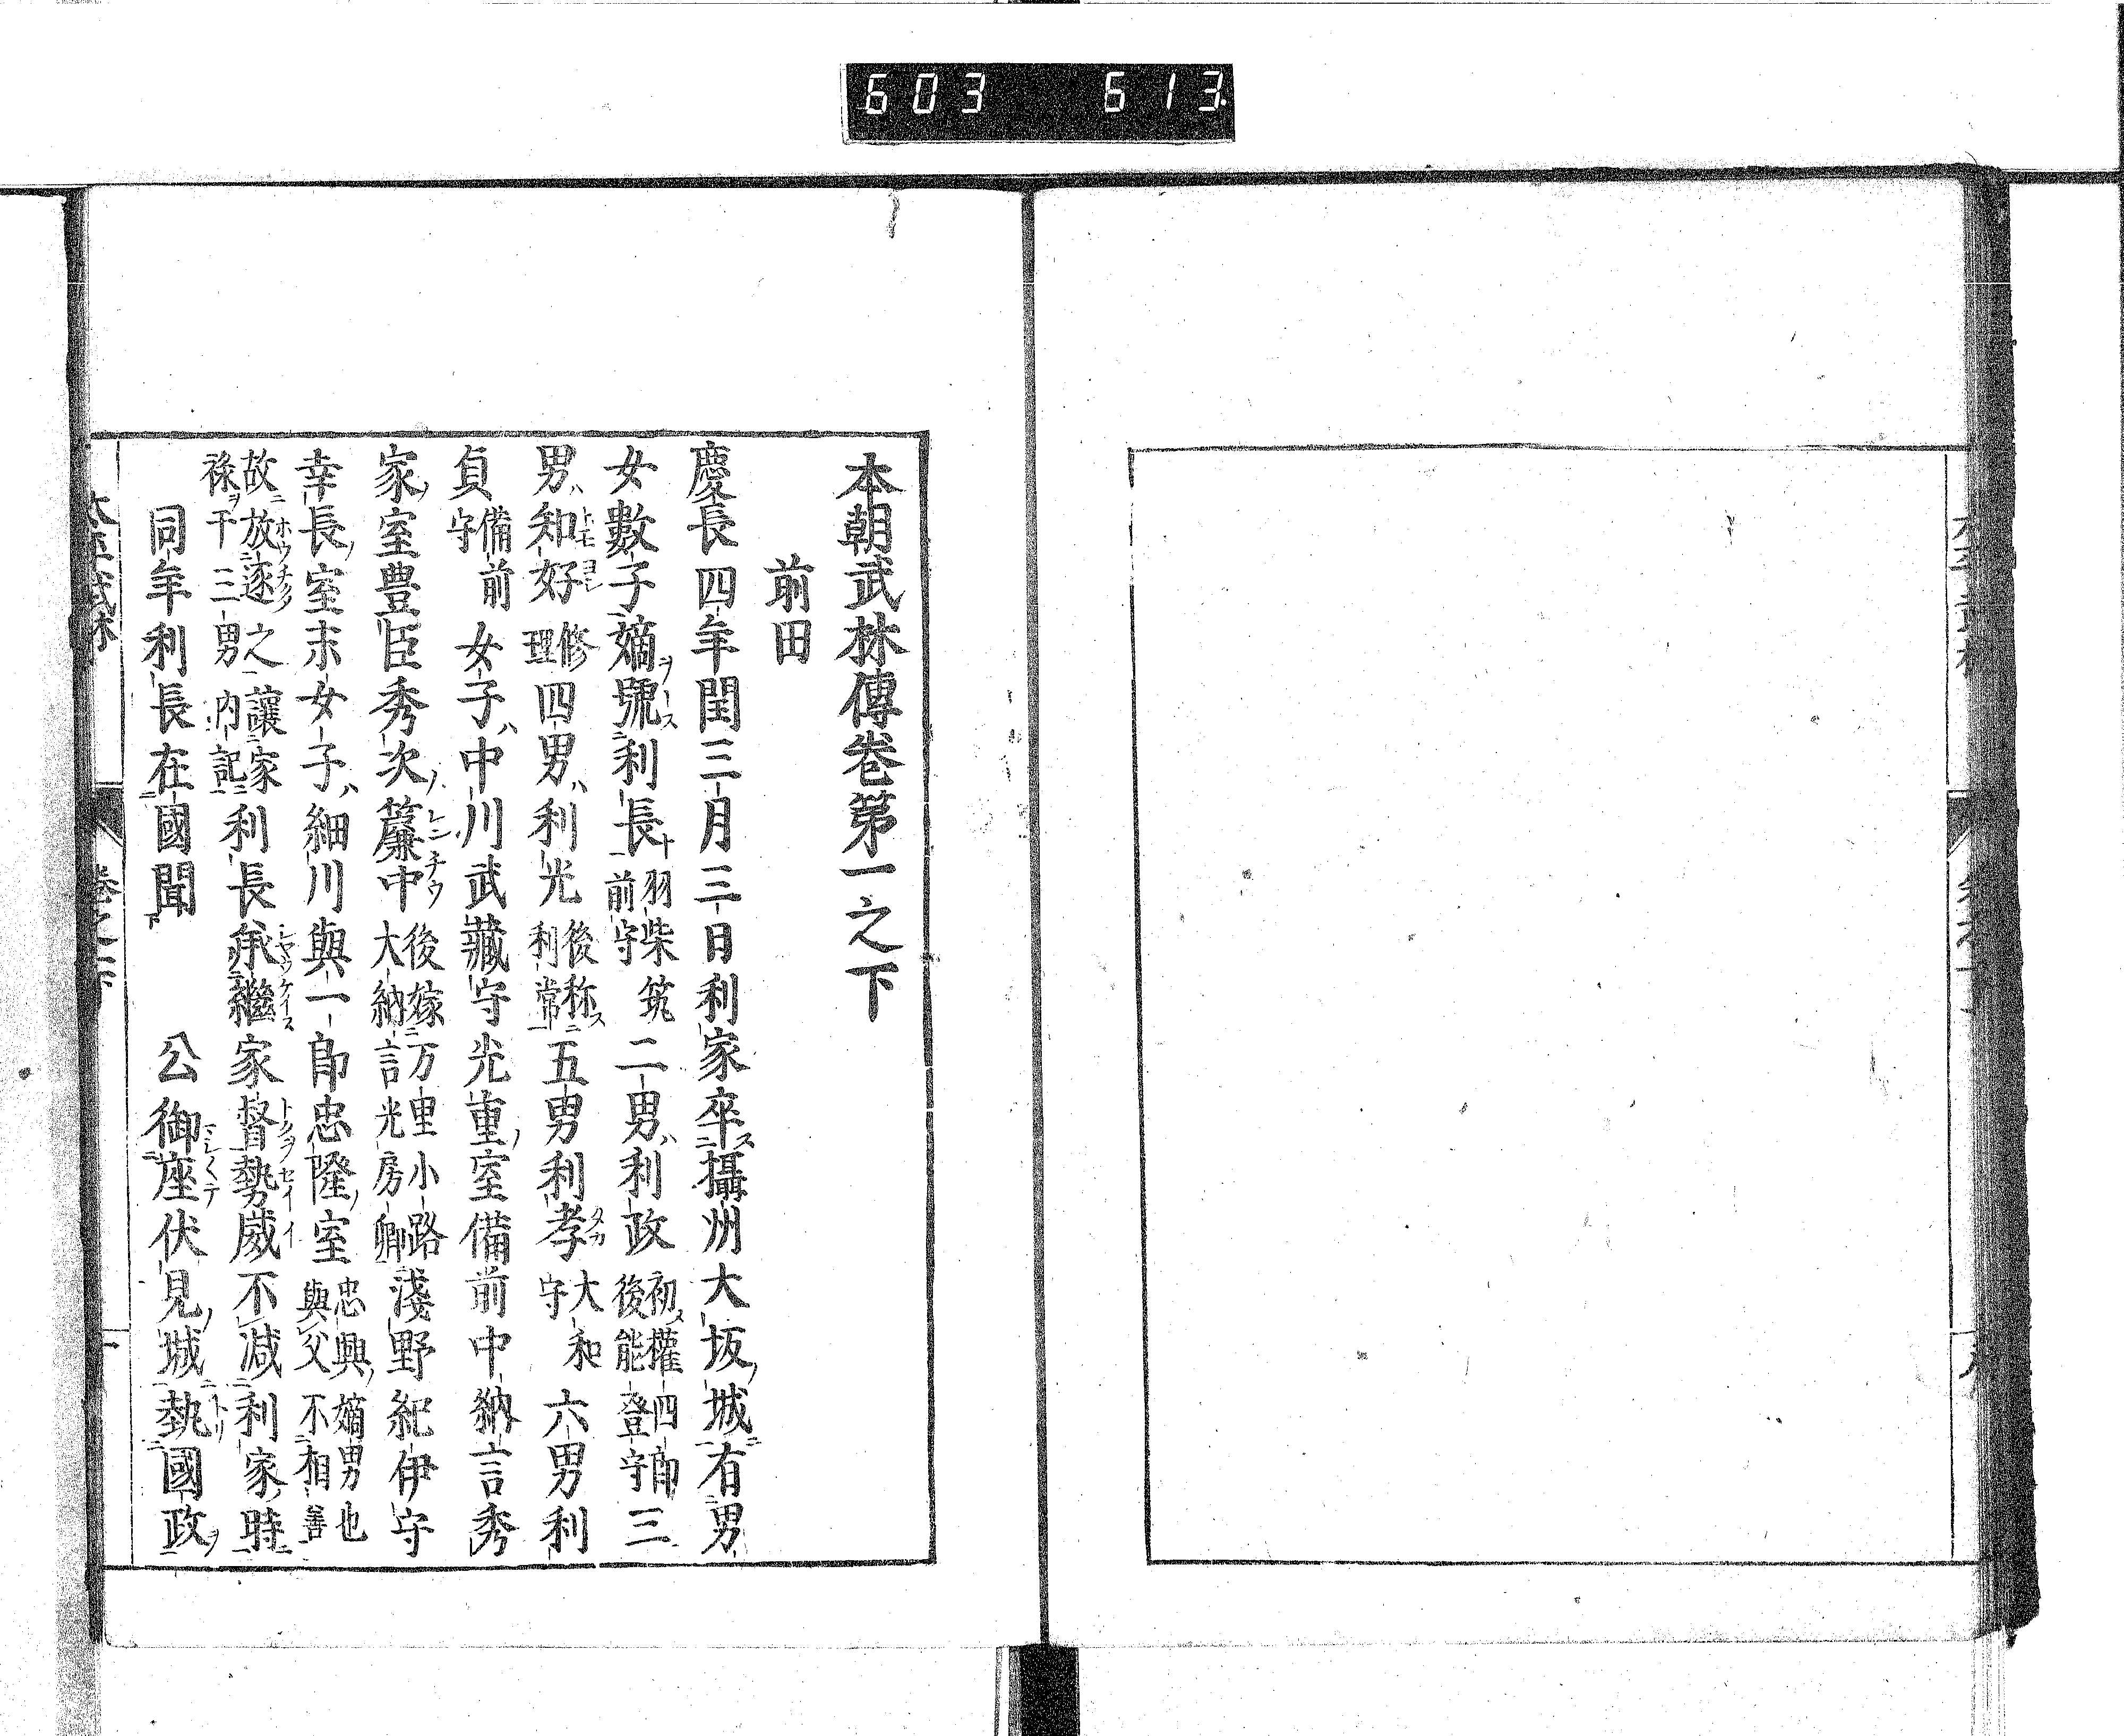 603 613
本朝武林傳巻第一之下
前田
慶長四年閏三月三日利家卒攝州大坂城有男
女數子嫡號利長羽柴筑前守二男利政初權四郎後能登守三
男知好修理四男利光後称利常五男利孝大和守六男利
貞備前守女子中川武藏守光重室備前中納言秀
家室豊臣秀次簾中後嫁万里小路大納言光房卿淺野紀伊守
幸長室末女子細川與一郎忠隆室忠興嫡男也與父不相善
故放逐之讓家禄于三男内記利長承繼家督勢威不減利家時
同年利長在國聞 公御座伏見城執國政